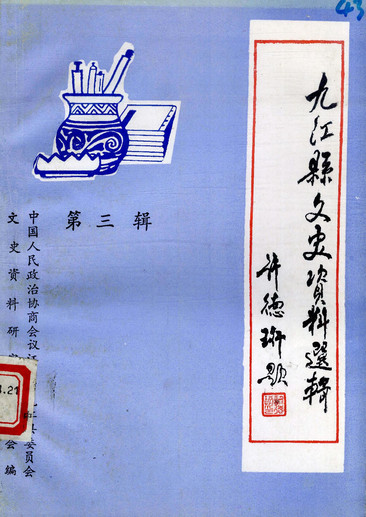 九江縣文史資料選輯
许德珩题
第三辑
中国人民政治协商会议江 江县委员会
文史资料研 会编
.21
43